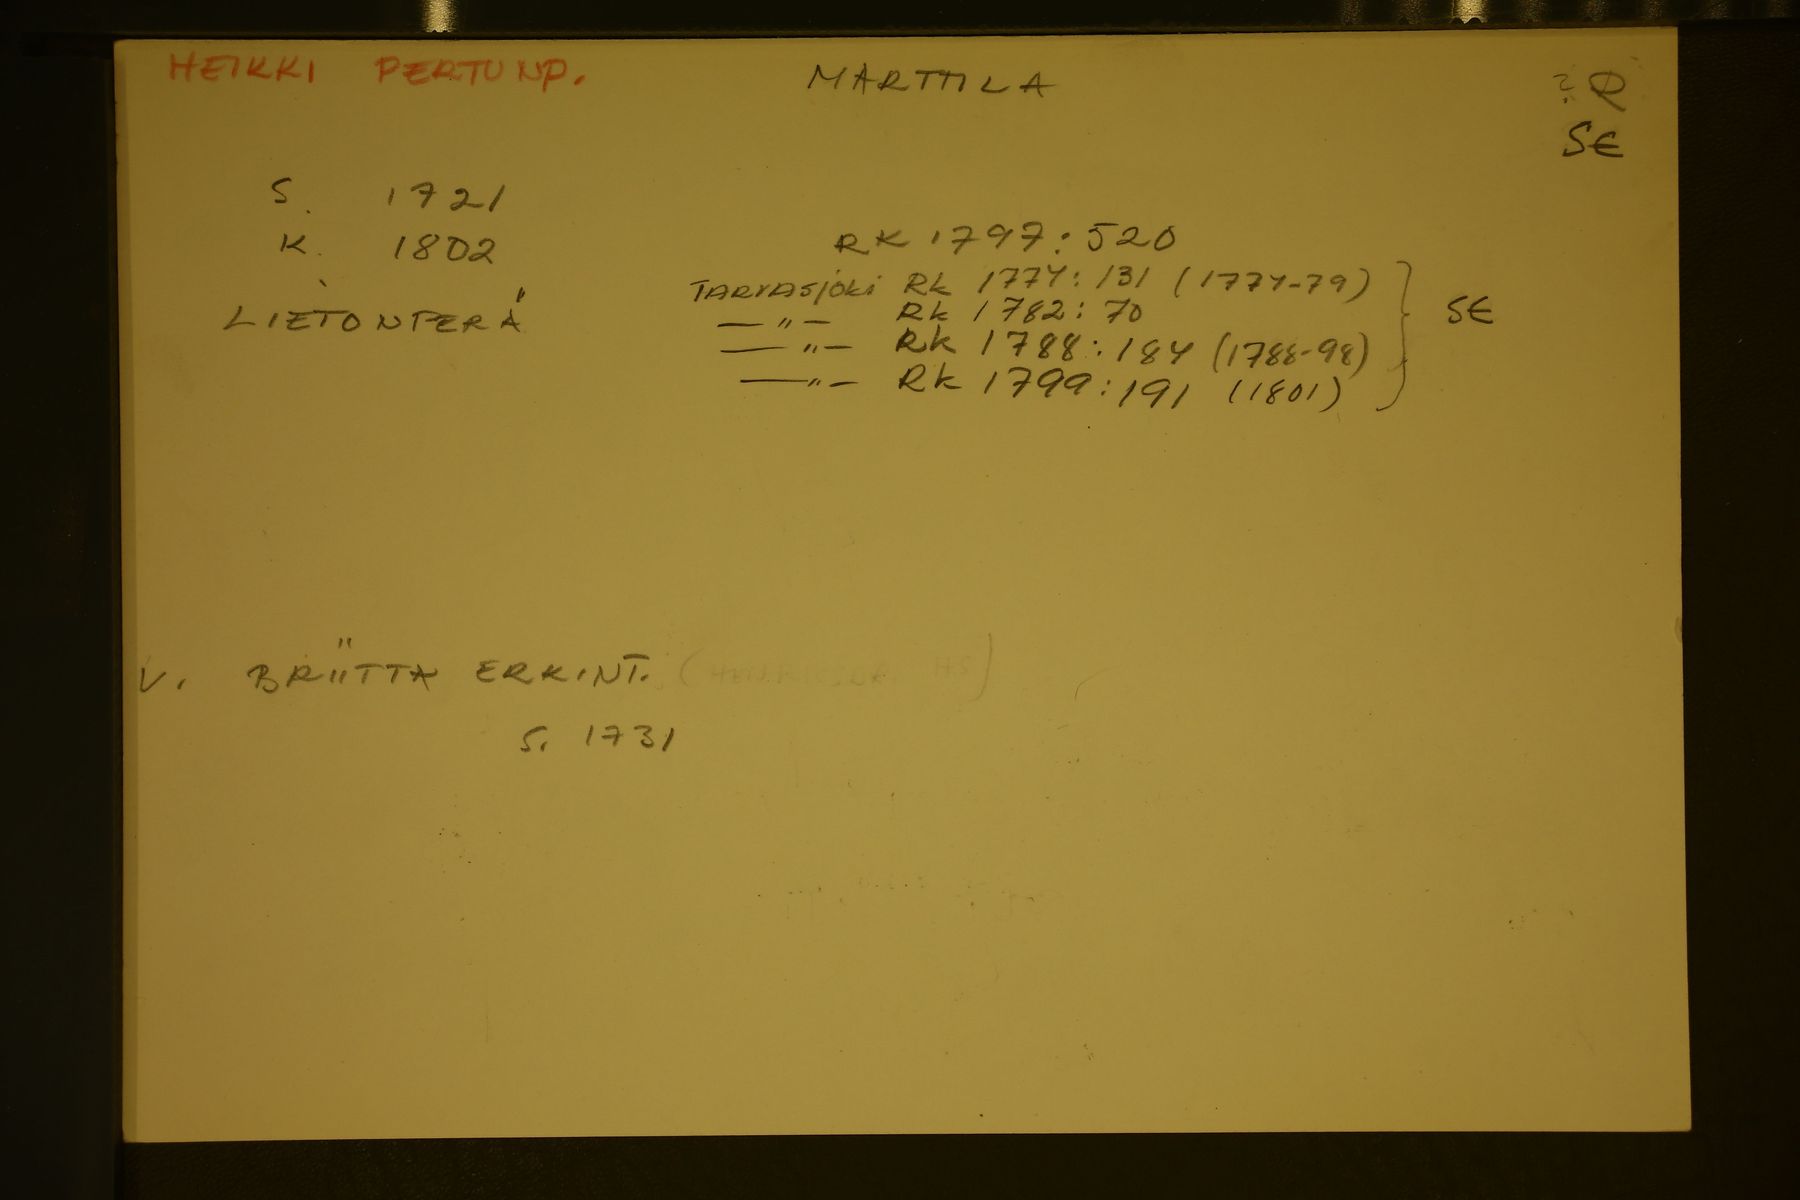 HEIKKI PERTUNP. MARTTILA ? R
SE
S. 1721
K. 1802 RK 1797:520
TARVASJOKI Rk 1774:131 (1774-79) } SE
LIETONPERÄ — " — Rk 1782:70
— " — Rk 1788:184 (1788-98)
— " — Rk 1799:191 (1801)
V. BRIITTA ERKINT. (HEINRICSDR HS)
S. 1731